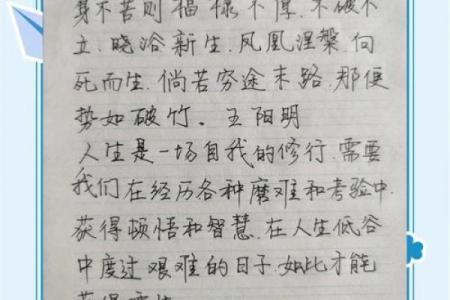 身不苦则福禄不厚.不破不
立.晓浴新生.凤凰涅槃.向
死而生.倘若穷途末路.那便
势如破竹。王阳明
人生是一场自我的修行.需要
我们在经历各种磨难和考验中.
获得顿悟和智慧.在人生低谷
中度过艰难的日子.如此才能